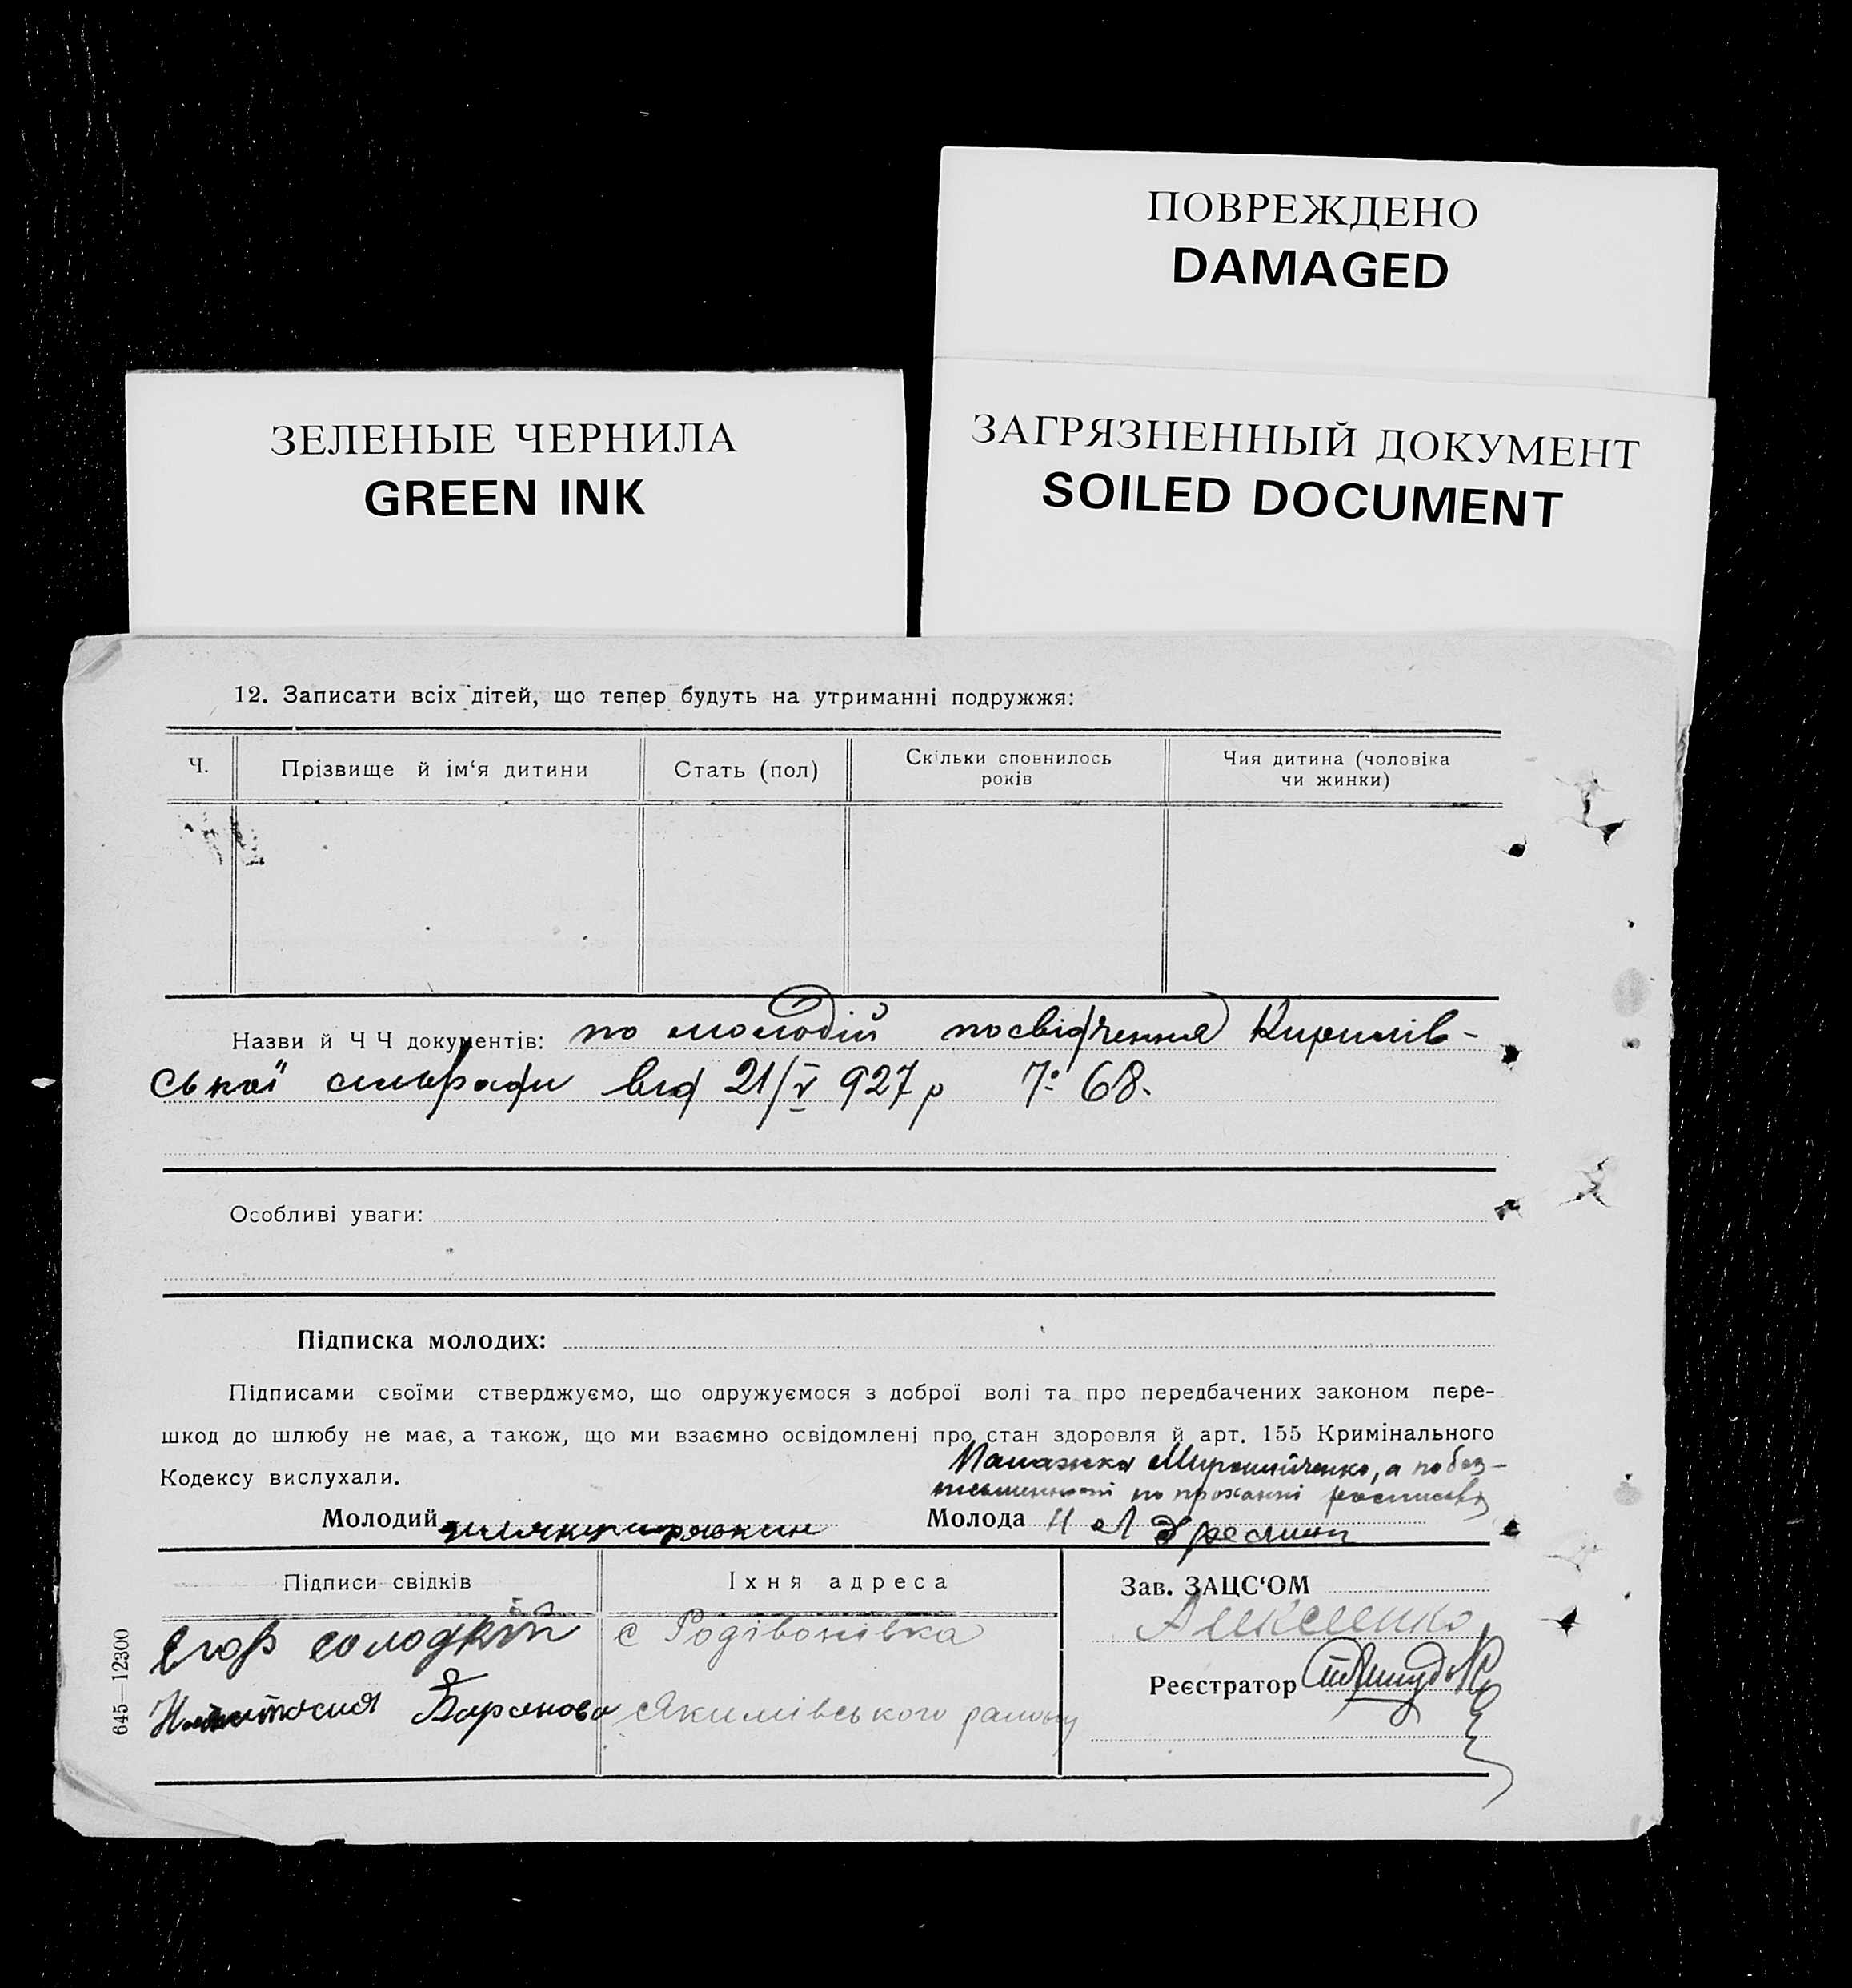 ПОВРЕЖДЕНО
DAMAGED
ЗЕЛЕНЫЕ ЧЕРНИЛА
GREEN INK
ЗАГРЯЗНЕННЫЙ ДОКУМЕНТ
SOILED DOCUMENT
12. Записати всіх дітей, що тепер будуть на утриманні подружжя:
Ч.
Прізвище й ім‘я дитини
Стать (пол)
Скільки сповнилось
років
Чия дитина (чоловіка
чи жинки)
Назви й Ч Ч документів: по молодій посвідчення Кирилів-
ської сільради від 21/V 927 р № 68.
Особливі уваги:
Підписка молодих:
Підписами своїми стверджуємо, що одружуємося з доброї волі та про передбачених законом пере-
шкод до шлюбу не має, а також, що ми взаємно освідомлені про стан здоровля й арт. 155 Кримінального
Кодексу вислухали.
Мирошніченко, а по без-
по проханні
Молодий
Молода
Підписи свідків
Їхня адреса
Зав. ЗАЦС‘ОМ
Алексеенко
Єгор солодкий
с Родівонівка
Реєстратор
Баранова
Якимівського району
645—12300